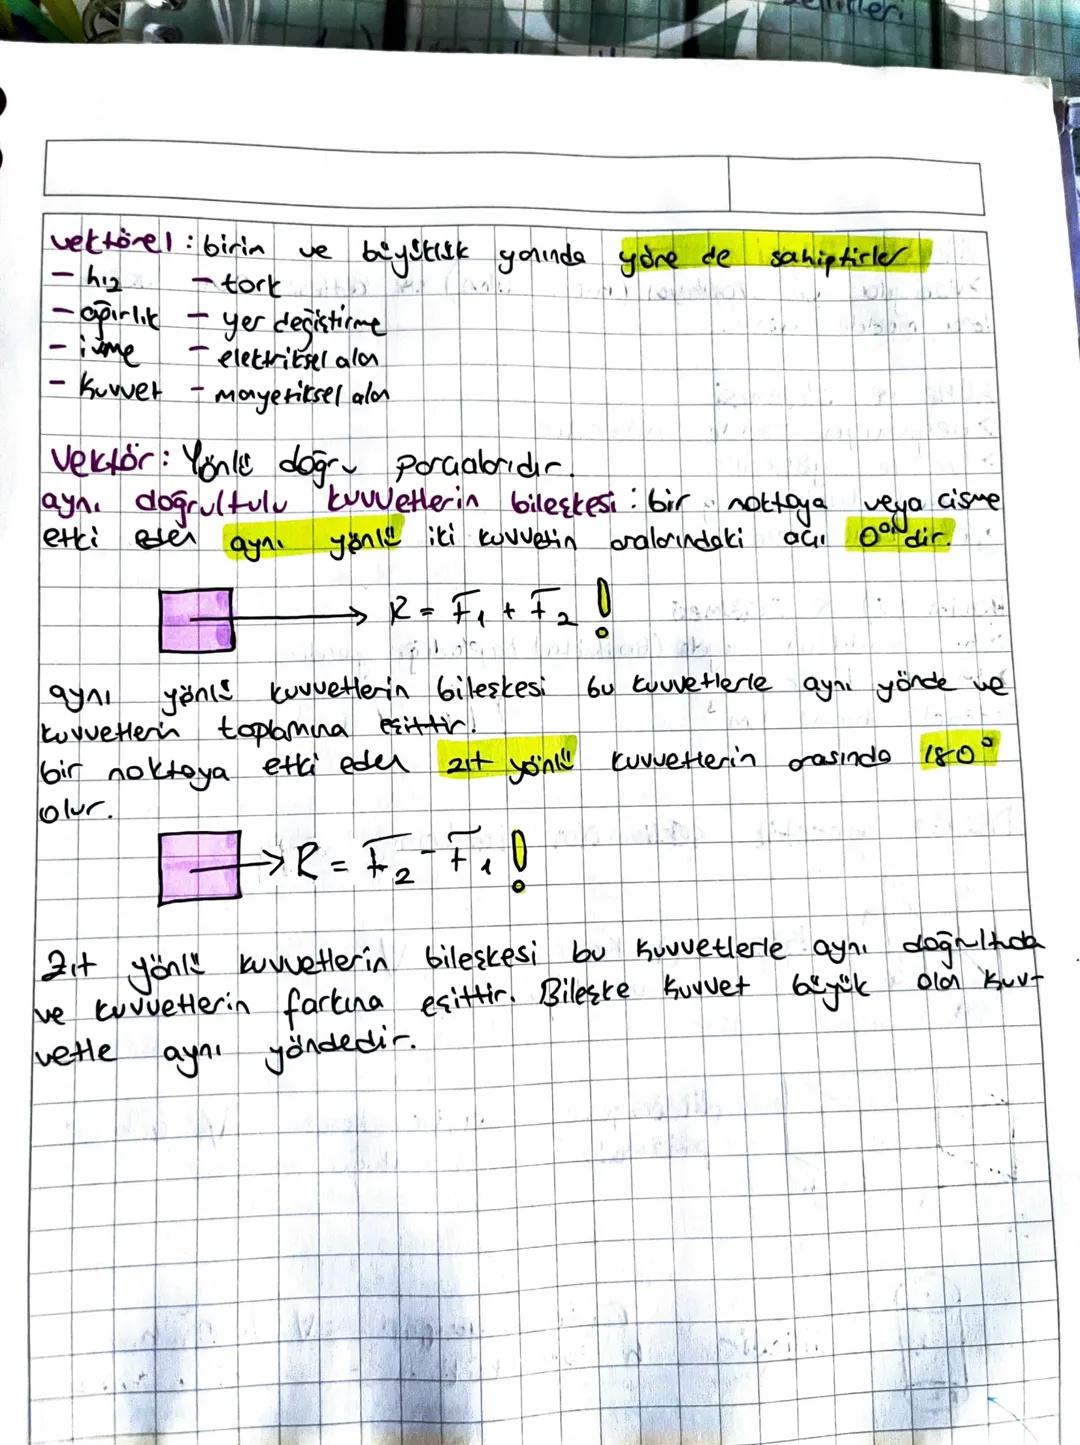 vektörel : birim ve büyüklük yanında yöne de sahiptirler
- hız - tork
- ağırlık - yer değiştirme
- ivme - elektriksel alan
- kuvvet - manyetiksel alan
Vektör : Yönlü doğru parçalarıdır.
aynı doğrultulu kuvvetlerin bileşkesi : bir noktaya veya cisme
etki eden aynı yönlü iki kuvvetin aralarındaki açı 0° dir.
R = F₁ + F₂ !
aynı yönlü kuvvetlerin bileşkesi bu kuvvetlerle aynı yönde ve
kuvvetlerin toplamına eşittir.
bir noktaya etki eden zıt yönlü kuvvetlerin arasında 180°
olur.
R = F₂ - F₁ !
Zıt yönlü kuvvetlerin bileşkesi bu kuvvetlerle aynı doğrultuda
ve kuvvetlerin farkına eşittir. Bileşke kuvvet büyük olan kuv-
vetle aynı yöndedir.